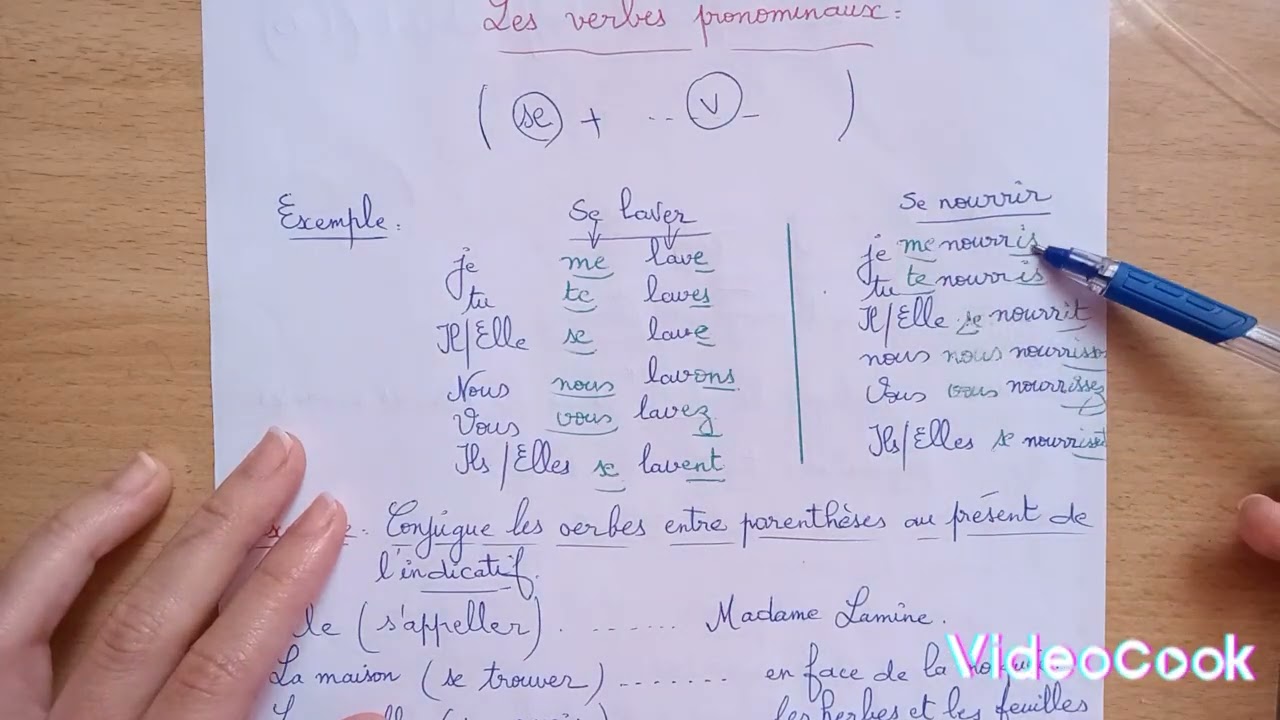 Les verbes pronominaux:
( se + .. V - )
Exemple: Se laver
je me lave
tu te laves
Il/Elle se lave
Nous nous lavons
Vous vous lavez
Ils/Elles se lavent
Se nourrir
je me nourris
tu te nourris
Il/Elle se nourrit
nous nous
Vous vous nourrissez
Ils/Elles se
Conjugue les verbes entre parenthèses au présent de
l'indicatif.
(s'appeller) ........ Madame Lamine.
La maison (se trouver) ........ en face de la
les herbes et les feuilles
VideoCook